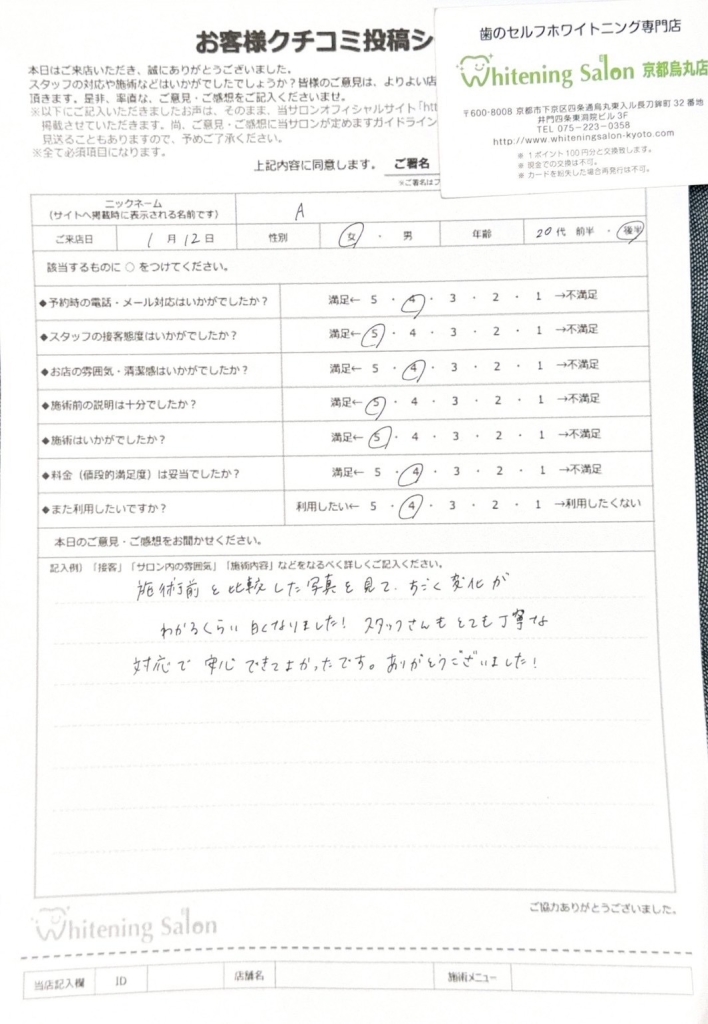 お客様クチコミ投稿シ
歯のセルフホワイトニング専門店
Whitening Salon 京都烏丸店
〒600-8008 京都市下京区四条通烏丸東入ル長刀鉾町 32 番地
井門四条東洞院ビル 3F
TEL 075-223-0358
http://www.whiteningsalon-kyoto.com
※ 1 ポイント 100 円分と交換致します。
※ 現金での交換は不可。
※ カードを紛失した場合再発行は不可。
本日はご来店いただき、誠にありがとうございました。
スタッフの対応や施術などはいかがでしたでしょうか?皆様のご意見は、よりよい店
頂きます。是非、率直な、ご意見・ご感想をご記入くださいませ。
※以下にご記入いただきましたお声は、そのまま、当サロンオフィシャルサイト「http
掲載させていただきます。尚、ご意見・ご感想に当サロンが定めますガイドライン
見送ることもありますので、予めご了承ください。
※全て必須項目になります。
上記内容に同意します。 ご署名
※ご署名はフ
ニックネーム
(サイトへ掲載時に表示される名前です) A
ご来店日 1 月 12 日 性別 女 ・ 男 年齢 20 代 前半 ・ 後半
該当するものに ○ をつけてください。
◆予約時の電話・メール対応はいかがでしたか? 満足← 5 ・ 4 ・ 3 ・ 2 ・ 1 →不満足
◆スタッフの接客態度はいかがでしたか? 満足← 5 ・ 4 ・ 3 ・ 2 ・ 1 →不満足
◆お店の雰囲気・清潔感はいかがでしたか? 満足← 5 ・ 4 ・ 3 ・ 2 ・ 1 →不満足
◆施術前の説明は十分でしたか? 満足← 5 ・ 4 ・ 3 ・ 2 ・ 1 →不満足
◆施術はいかがでしたか? 満足← 5 ・ 4 ・ 3 ・ 2 ・ 1 →不満足
◆料金(値段的満足度)は妥当でしたか? 満足← 5 ・ 4 ・ 3 ・ 2 ・ 1 →不満足
◆また利用したいですか? 利用したい← 5 ・ 4 ・ 3 ・ 2 ・ 1 →利用したくない
本日のご意見・ご感想をお聞かせください。
記入例)「接客」「サロン内の雰囲気」「施術内容」などをなるべく詳しくご記入ください。
施術前と比較した写真を見て、すごく変化が
わかるくらい白くなりました! スタッフさんもとても丁寧な
対応で安心できてよかったです。ありがとうございました!
ご協力ありがとうございました。
Whitening Salon
当店記入欄 ID 店舗名 施術メニュー